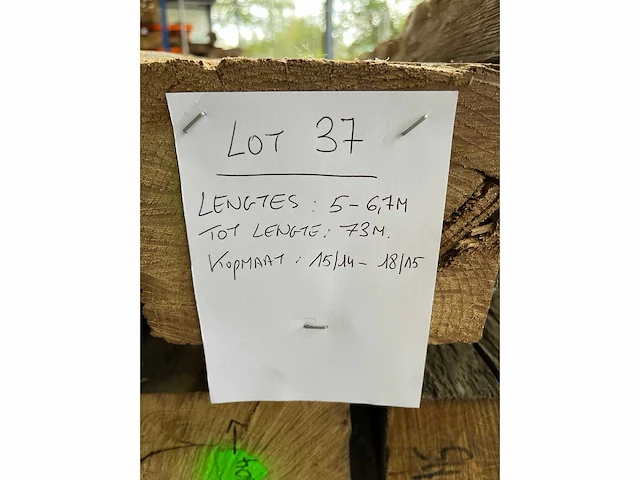 LOT 37
LENGTES : 5 - 6,7M
TOT LENGTE: 73M.
KOPMAAT : 15/14 - 18/15